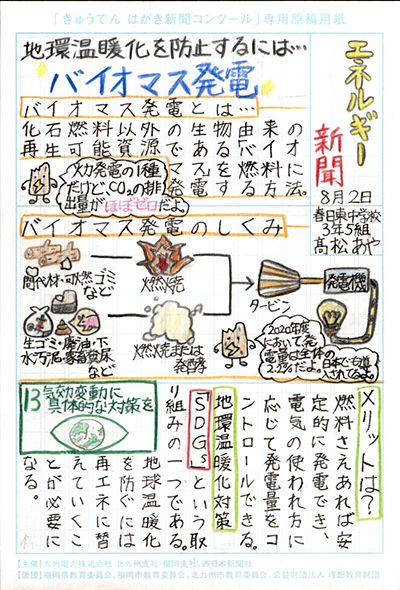 「きゅうでん はがき新聞コンクール」専用原稿用紙
地環温暖化を防止するには…
バイオマス発電
エネルギー
新聞
8月2日
春日東中学校
3年5組
髙松あや
バイオマス発電とは…
化石燃料以外の生物由来の
再生可能資源であるバイオ
マスを燃料に
発電する方法。
火力発電の1種
だけど、CO₂の排
出量がほぼゼロだよ。
バイオマス発電のしくみ
間伐材・可燃ゴミ
など
燃焼
生ゴミ・廃油・下
水汚泥・家畜糞尿
など
燃焼または
発酵
タービン
発電機
2020年度
において、発
電量は全体の
2.2%だよ。
日本でも導
入されてるよ。
メリットは?
燃料さえあれば安
定的に発電でき、
電気の使われ方に
応じて発電量をコ
ントロールできる。
地環温暖化対策
「SDGs」という取
り組みの一つである。
13 気候変動に
具体的な対策を
地球温暖化
を防ぐには
再エネに替
えていくこ
とが必要に
なる。
【主催】九州電力株式会社 北九州支社・福岡支社、西日本新聞社
【後援】福岡県教育委員会、福岡市教育委員会、北九州市教育委員会、公益財団法人 理想教育財団